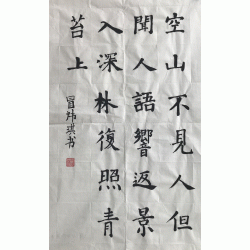 空山不見人但
聞人語響返景
入深林復照青
苔上
冒炜琪书